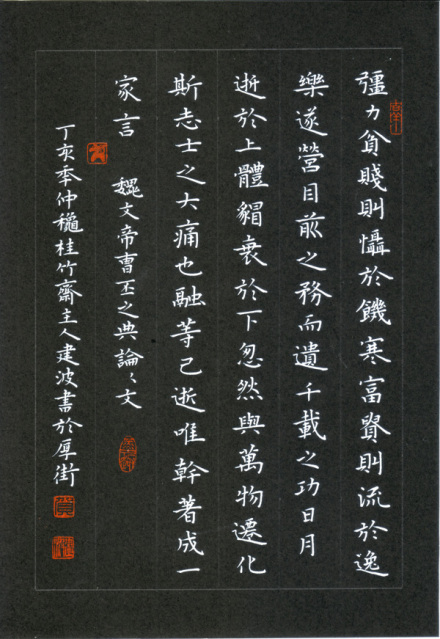 彊力貧賤則懾於饑寒富貴則流於逸
樂遂營目前之務而遺千載之功日月
逝於上體貌衰於下忽然與萬物遷化
斯志士之大痛也融等已逝唯幹著成一
家言 魏文帝曹丕之典論〻文
丁亥秊仲穐桂竹齋主人建波書於厚街